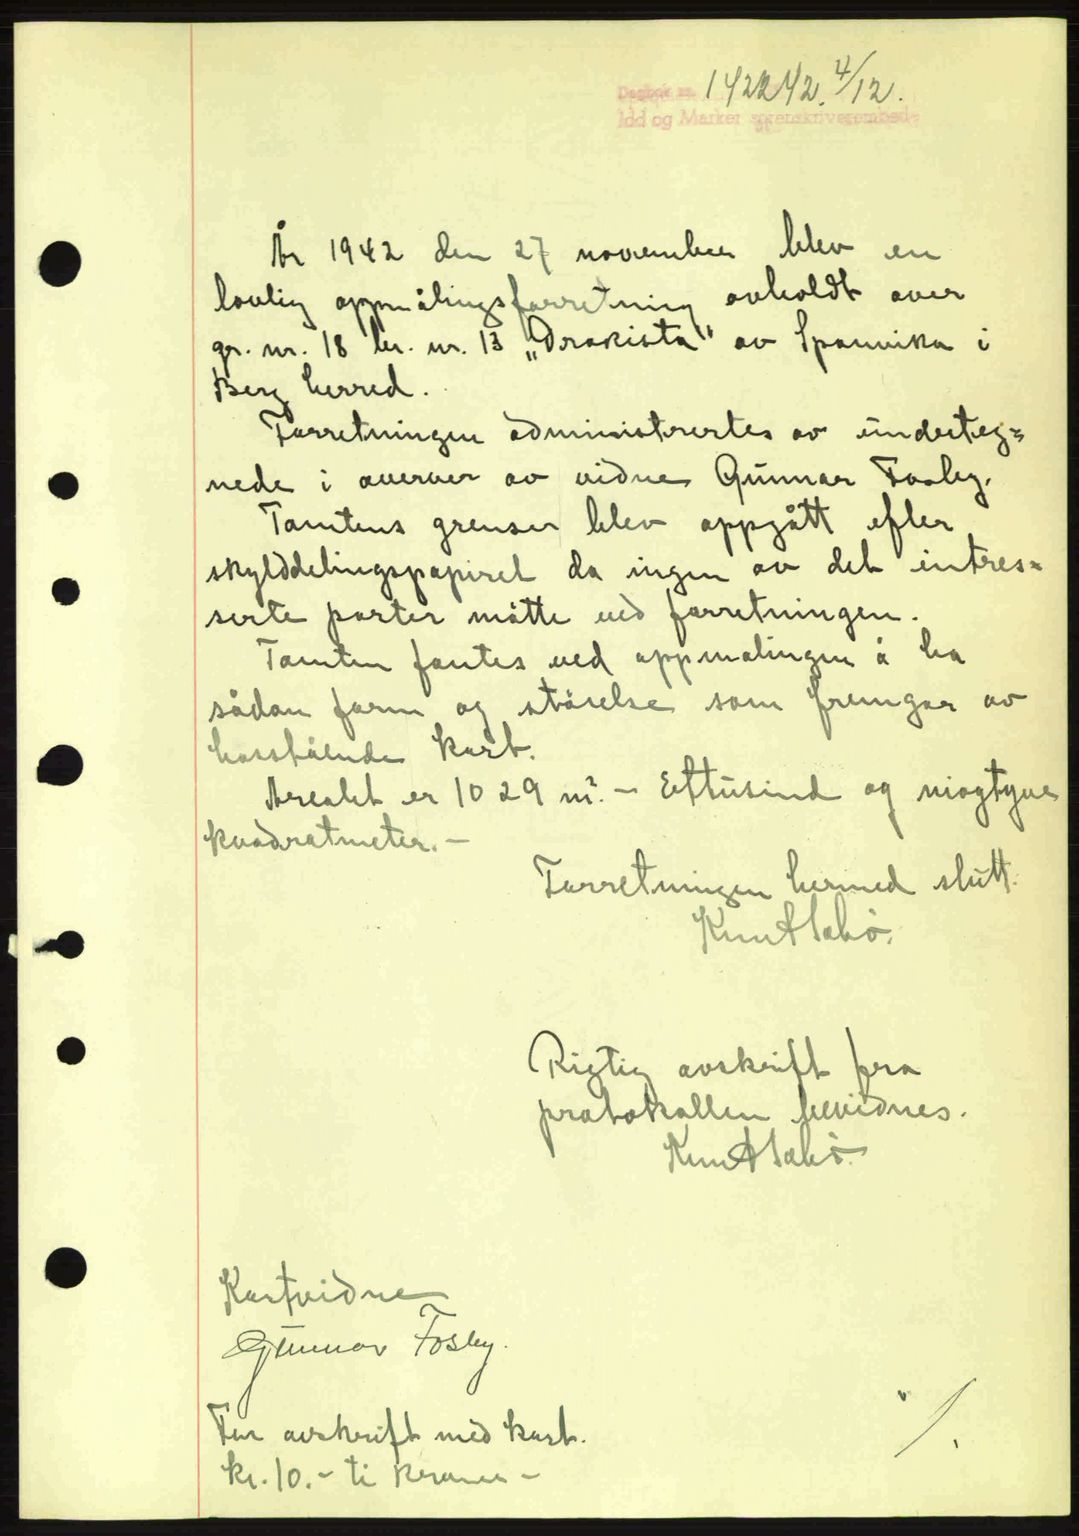 Dagbok nr. 1422 42. 4/12.
Idd og Marker sorenskriverembede
År 1942 den 27 november blev en
lovlig oppmålingsforretning avholdt over
gr. nr. 18 br. nr. 13 „Drakista" av Sponvika i
Berg herred.
Forretningen administrertes av underteg=
nede i overvær av vidne Gunnar Fosby.
Tomtens grenser blev oppgått efter
skylddelingspapiret da ingen av det intres=
serte parter møtte ved forretningen.
Tomten fantes ved oppmålingen å ha
sådan form og størelse som fremgår av
hosstående kart.
Arealet er 1029 m². - Ettusind og niogtyve
kvadratmeter. -
Forretningen hermed slutt.
Knut Sæbø.
Rigtig avskrift fra
protokollen bevidnes.
Knut Sæbø.
Kartvidne
Gunnar Fosby.
For avskrift med kart.
kr. 10. - ti kroner -